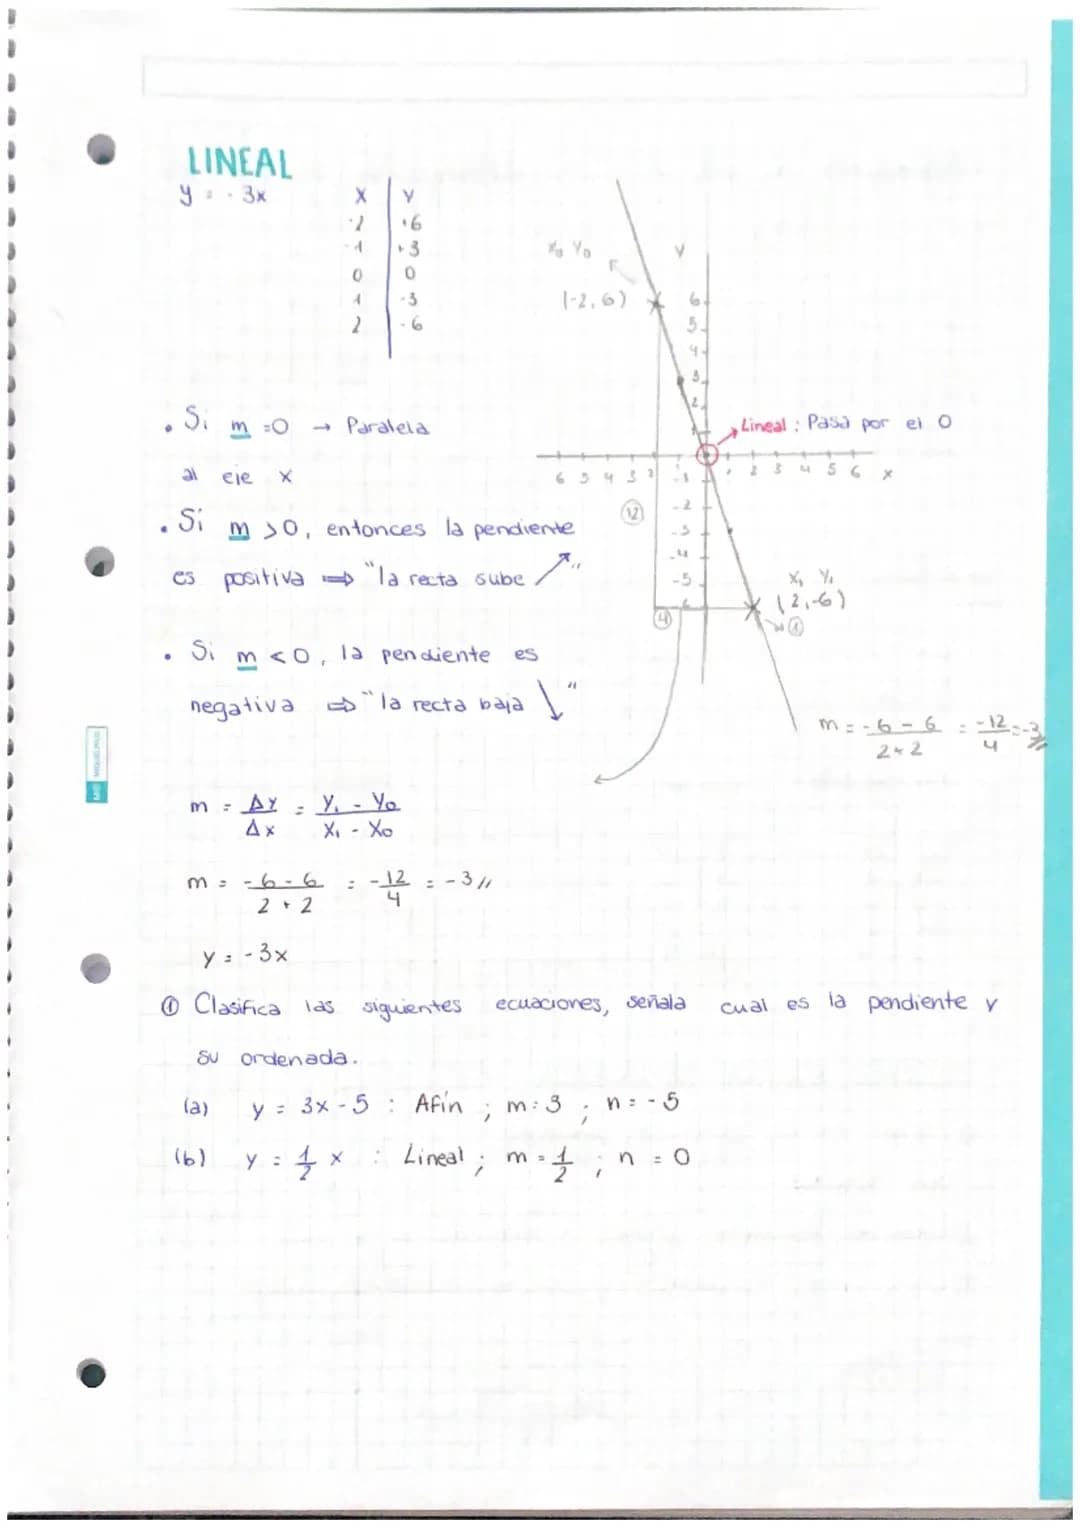 LINEAL
y = -3x
X Y
-2 +6
-1 +3
0 0
1 -3
2 -6
X₀ Y₀
(-2,6)
Y
6
5
4
3
2
1
Lineal : Pasa por el 0
6 5 4 3 2 1 1 2 3 4 5 6 x
-1
-2
-3
-4
-5
-6
12
4
X₁ Y₁
(2,-6)
①
m = -6 - 6 / 2 + 2 = -12 / 4 = -3
• Si m = 0 → Paralela
al eje x
• Si m > 0, entonces la pendiente
es positiva ⇒ "la recta sube ↗"
• Si m < 0, la pendiente es
negativa ⇒ "la recta baja ↘"
m = Δy / Δx = Y₁ - Y₀ / X₁ - X₀
m = -6 - 6 / 2 + 2 = -12 / 4 = -3 //
y = -3x
① Clasifica las siguientes ecuaciones, señala cual es la pendiente y
su ordenada.
(a) y = 3x - 5 : Afín ; m = 3 ; n = -5
(b) y = 1/2 x : Lineal ; m = 1/2 ; n = 0
MIQUELRIUS